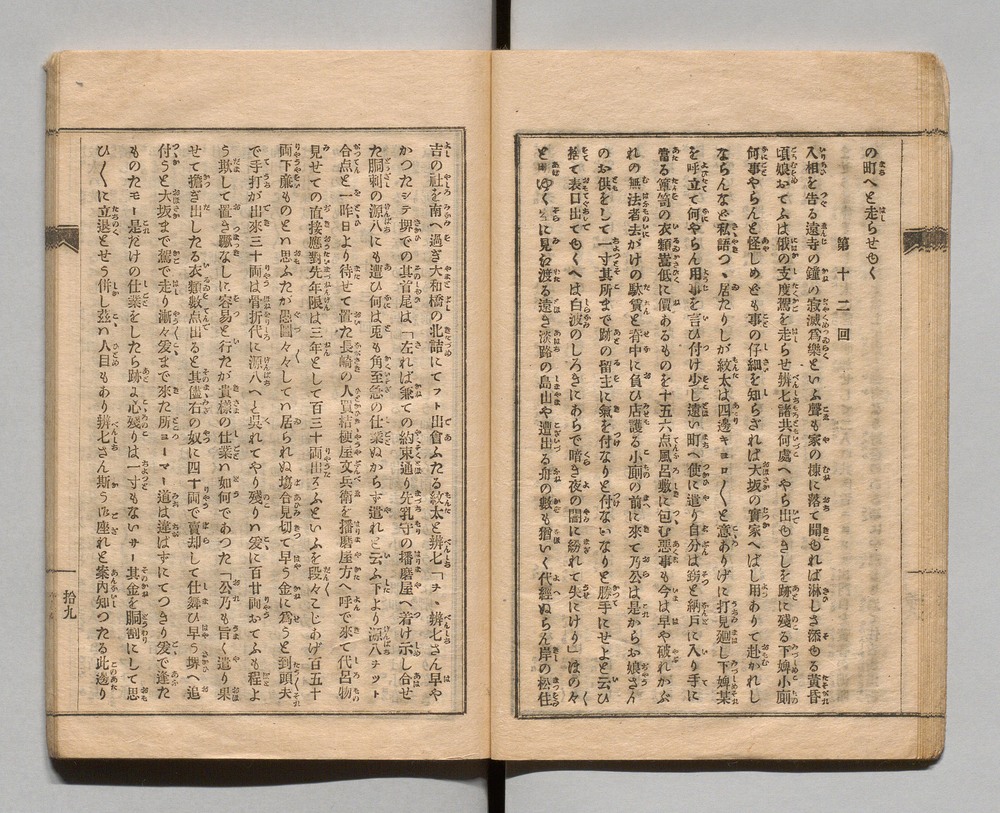 の町へと走らせゆく
第十二回
入相を告る遠寺の鐘の寂滅為樂といふ聲も家の棟に落て聞ゆれば淋しさ添ゆる黄昏
頃娘おてふは俄の支度駕を走らせ辨七諸共何處へやら出ゆきしを跡に残る下婢小厠
何事やらんと怪しめども事の仔細を知らされば大坂の實家へばし用ありて赴かれし
ならんなど私語つゝ居たりしが紋太は四邊キヨロ〳〵と意ありげに打見廻し下婢某
を呼立て何やらん用事を言ひ付け少し遠い町へ使に遣り自分は窃と納戸に入り手に
當る簟笥の衣類嵩低に價あるものを十五六点風呂敷に包む悪事も今は早や破れかぶ
れの無法者去がけの駄賃と脊中に負ひ店護る小厠の前に來て乃公は是からお娘さん
のお供をして一寸其所まで跡の留主に氣を付なりと付ないなりと勝手にせよと云ひ
捨て表口出てゆくへは白波のしろきにあらで暗き夜の闇に紛れて失にけり」ほの々
と明ゆく空に見わ渡る遠き淡路の島山や遭出る舟の數も猶いく代經ぬらん岸の松住
吉の社を南へ過ぎ大和橋の北詰にてフト出會ふたる紋太と辨七「ヲヽ辨七さん早や
かつたシテ堺での其首尾は「左れば兼ての約束通り先乳守の播磨屋へ着け示し合せ
た胴刺の源八にも逢ひ何は兎も角至急の仕業ぬからず遣れと云ふ下より源八チツト
合点と一昨日より待せて置た長崎の人買桔梗屋文兵衛を播磨屋方へ呼で來て代呂物
見せての直接應對先年限は三年として百三十両出そふといふを段々こじあげ百五十
両下廉ものとハ思ふたが愚圖々々してハ居られぬ塲合見切て早う金に爲うと到頭夫
で手打が出來三十両は骨折代に源八へと呉れてやり残りハ爰に百廿両おてふも程よ
う欺して置き難なしに容易と行たが貴様の仕業ハ如何であつた「公乃も旨く遣り果
せて擔ぎ出したる衣類數点出ると其儘右の奴に四十両で賣却して仕舞ひ早う堺へ追
付うと大坂まで駕で走り漸々爰まで來た所ヨーマー道は違はずにてつきり爰で逢た
ものだモー是だけの仕業をしたら跡ょ心残りは一寸もないサー其金を胴割にして思
ひ〳〵に立退とせう併し茲ハ人目もあり辨七さん斯うム座れと案内知つたる此邊り
拾九